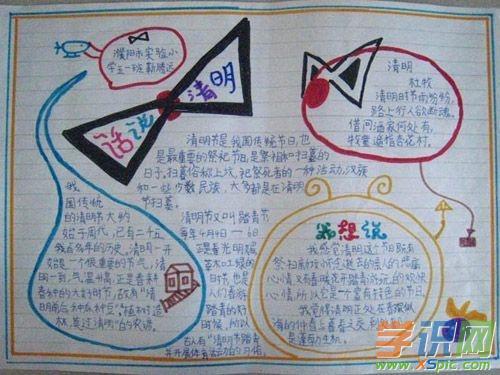 濮阳市实验小
学五一班靳腾远
话说
清明
清明
杜牧
清明时节雨纷纷,
路上行人欲断魂。
借问酒家何处有,
牧童遥指杏花村。
清明节是我国传统节日,也
是最重要的祭祀节日,是祭祖和扫墓的
日子。扫墓俗称上坟,祀祭死者的一种活动。汉族
和一些少数民族,大多都是在清明
节扫墓。
我
国传统
的清明节大约
始于周代,已有二千五
百多年的历史。清明一开
始是一个很重要的节气,清
明一到,气温升高,正是春耕
春种的大好时节,故有“清
明前后,种瓜种豆”“植树造
林,莫过清明”的农谚。
清明节又叫踏青节
每年4月4日——6日
正是春光明媚
草木吐绿的
时节,也是
人们春游
踏青的好
时候,所以
古人有“清明节踏青
并开展体育活动的习俗。
我想说
我感觉清明这个节日既有
祭扫新坟怀念逝去的亲人的酸痛
心情,又有春暖花开踏青游玩的欢快
心情,所以它是一个富有特色的节日。
我觉得清明正处在春暖似
满的仲春与暮春之交,
学识网
www.XSpic.com